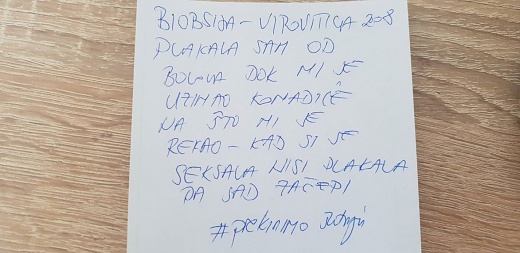 BIOBSIJA - VIROVITICA 2008
PLAKALA SAM OD
BOLOVA DOK MI JE
UZIMAO KOMADIĆE
NA ŠTO MI JE
REKAO - KAD SI SE
SEKSALA NISI PLAKALA
PA SAD ZAČEPI
#prekinimo šutnju